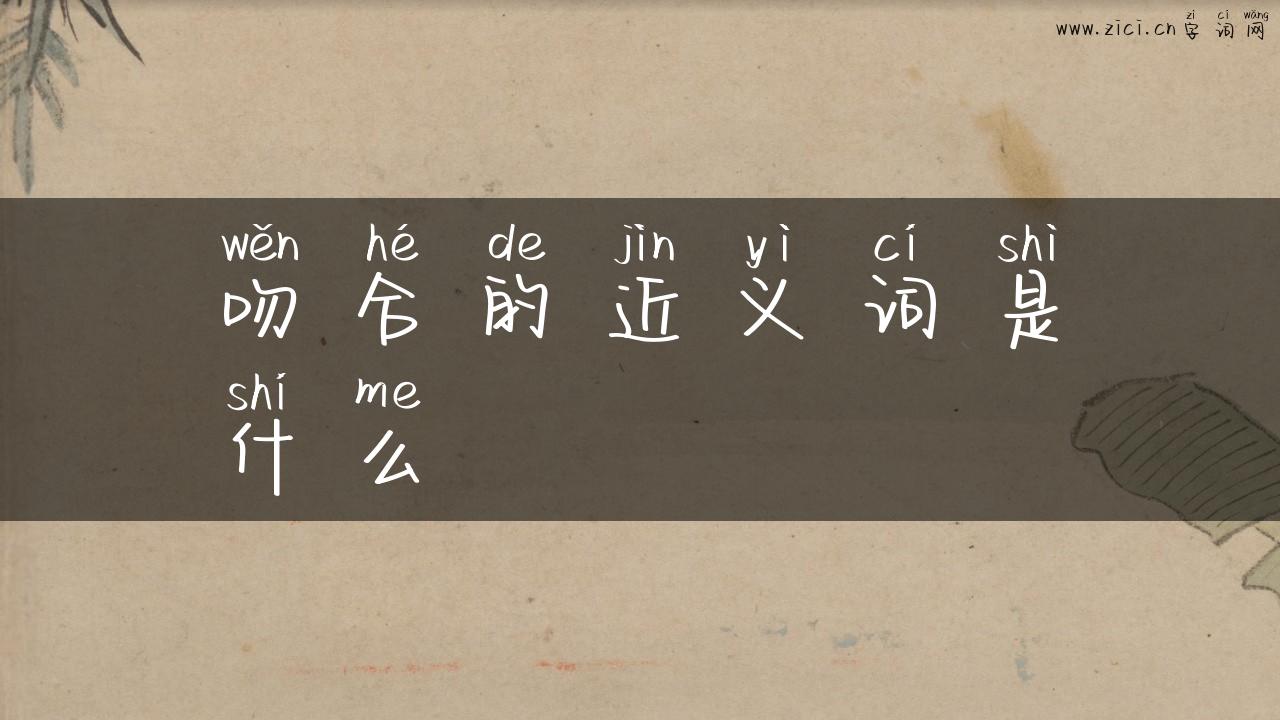 zì cí wǎng
www.zici.cn 字词网
wěn hé de jìn yì cí shì
吻合的近义词是
shí me
什么